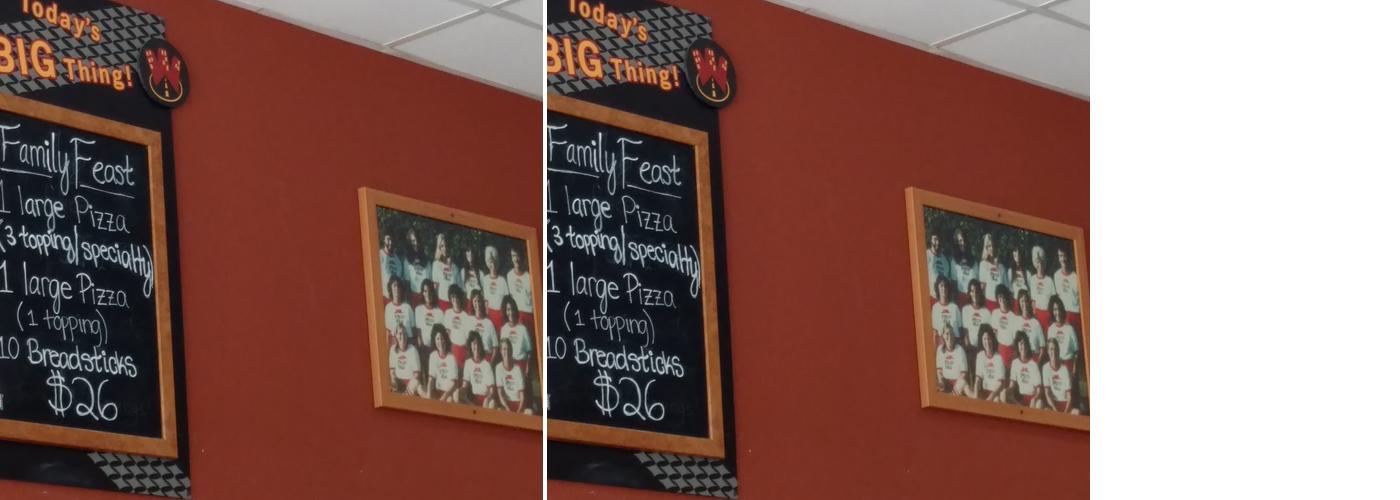 Today's
BIG Thing!
Family Feast
1 large Pizza
(3 topping/specialty)
1 large Pizza
(1 topping)
10 Breadsticks
$26
Today's
BIG Thing!
Family Feast
1 large Pizza
(3 topping/specialty)
1 large Pizza
(1 topping)
10 Breadsticks
$26